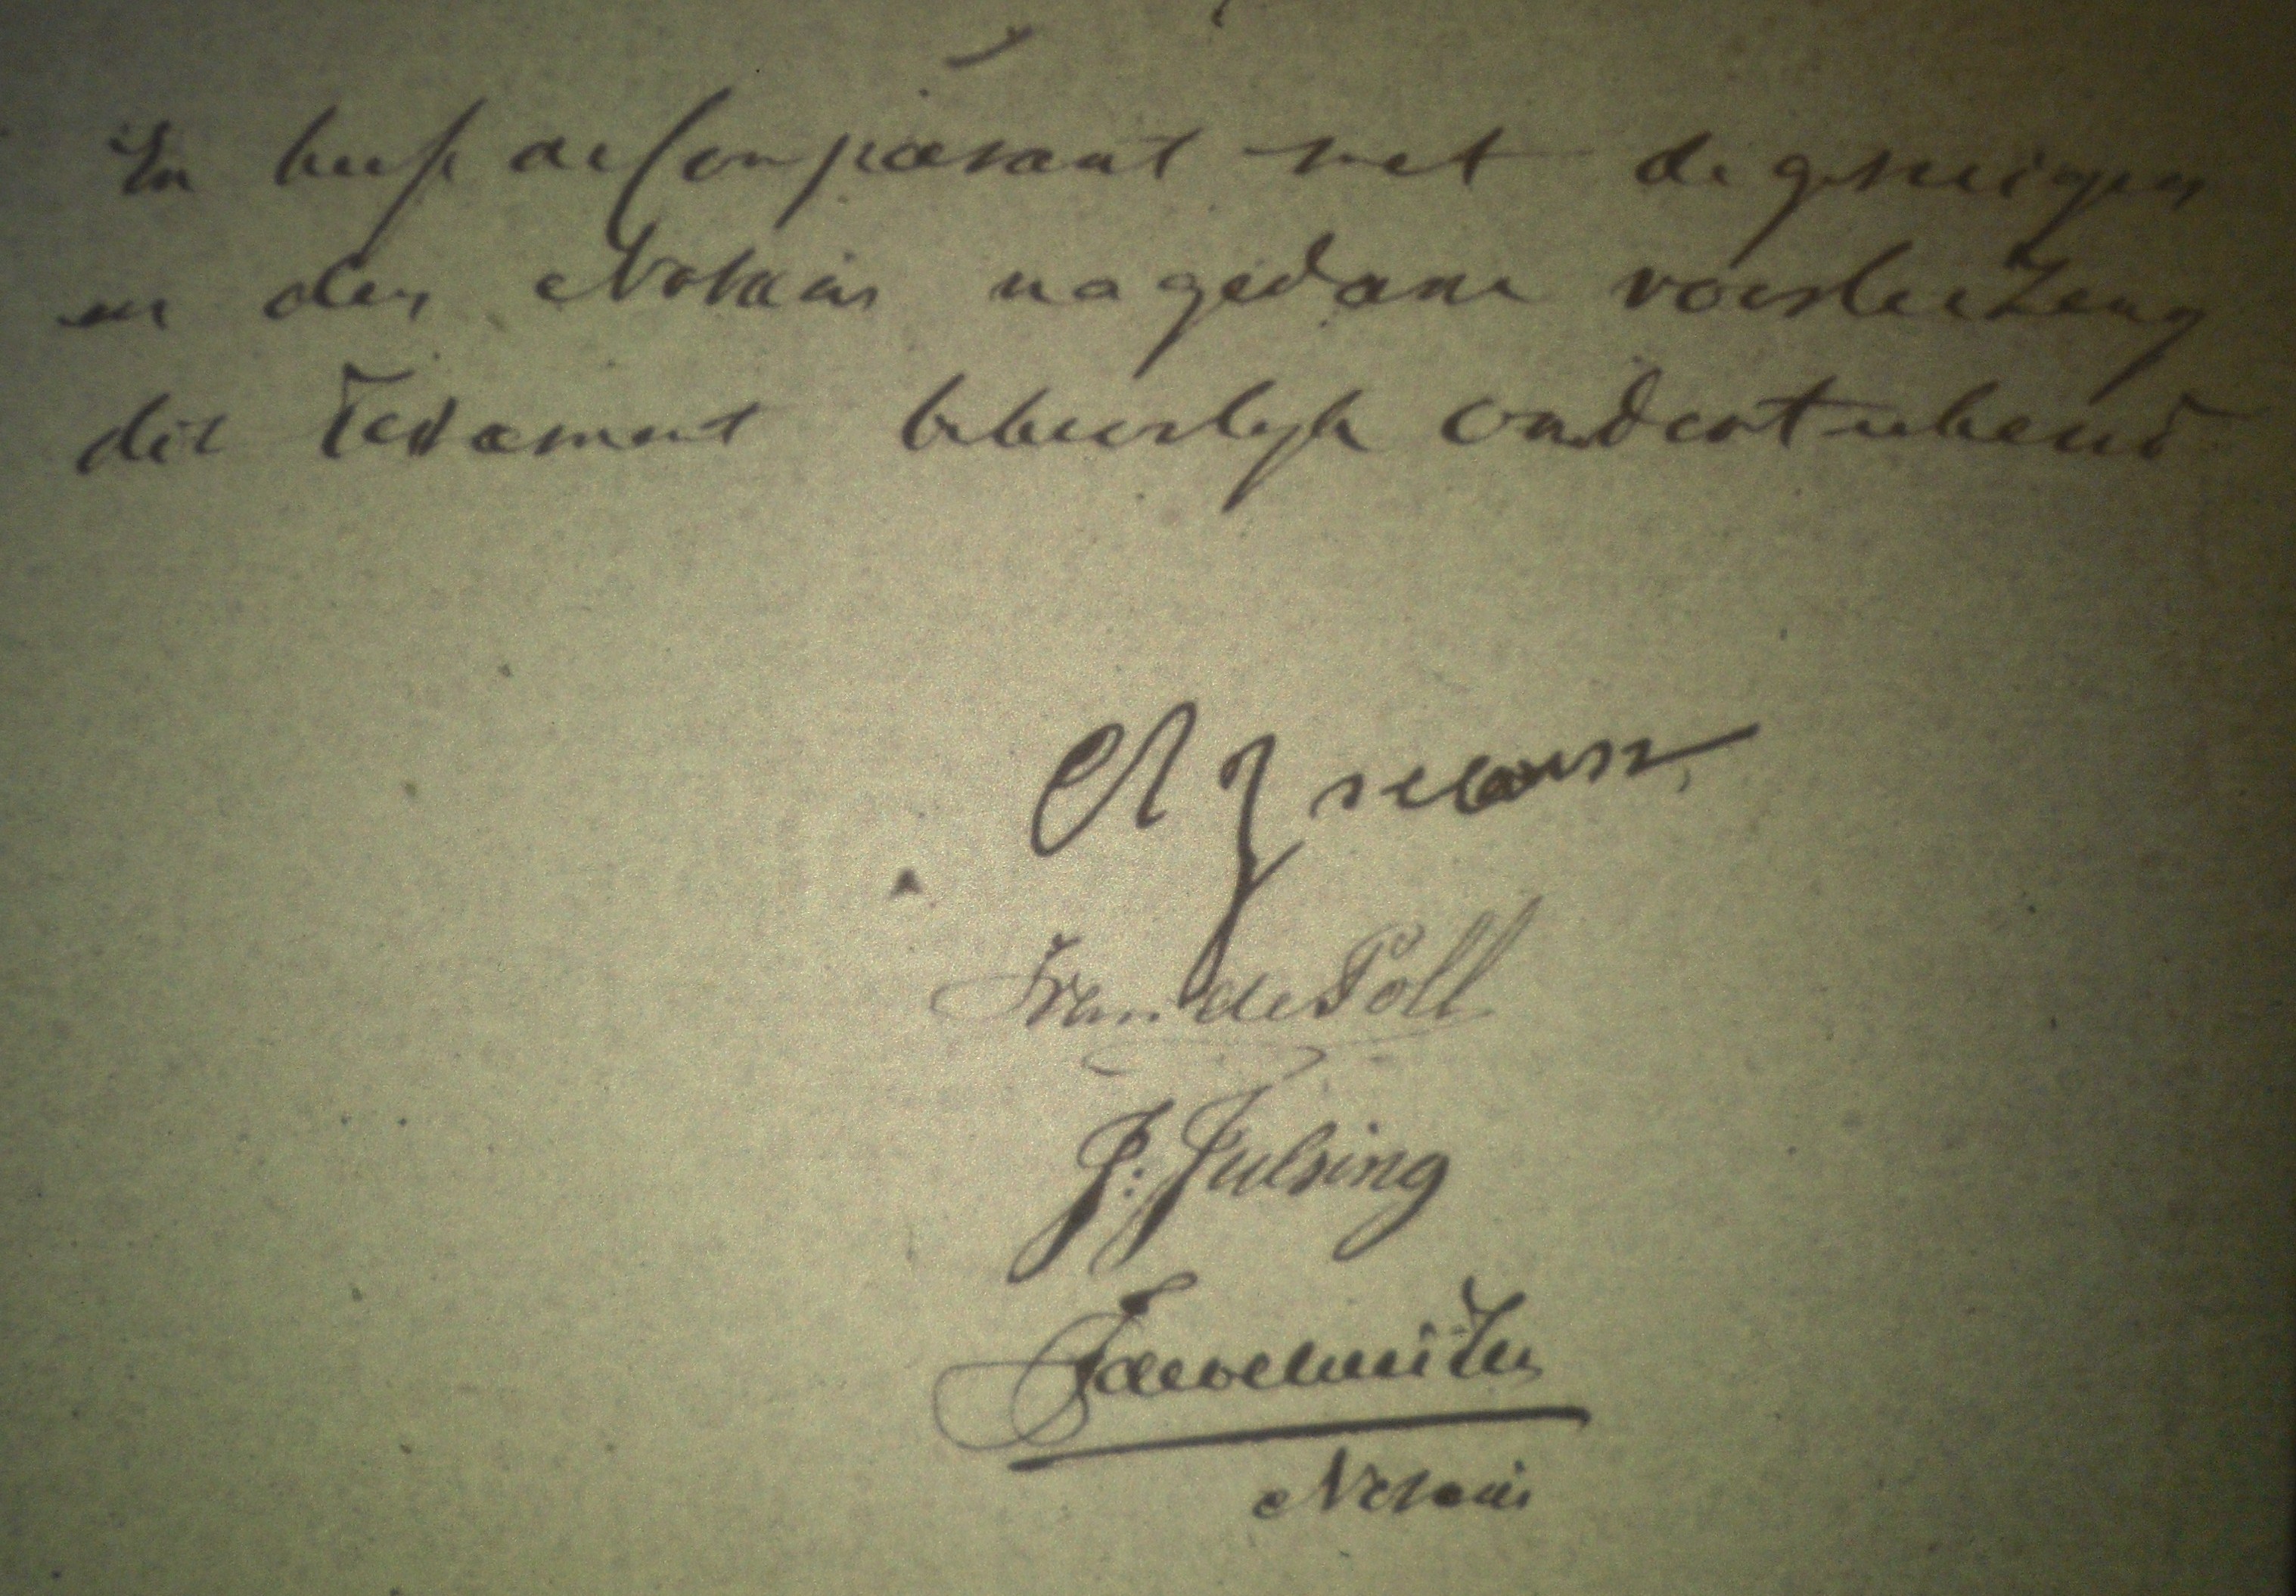 En heeft de Comparant met de getuigen
en den Notaris na gedane voorlezing
dit Testament behoorlijk onderteekend
F van de Poll
J: Julsing
Notaris